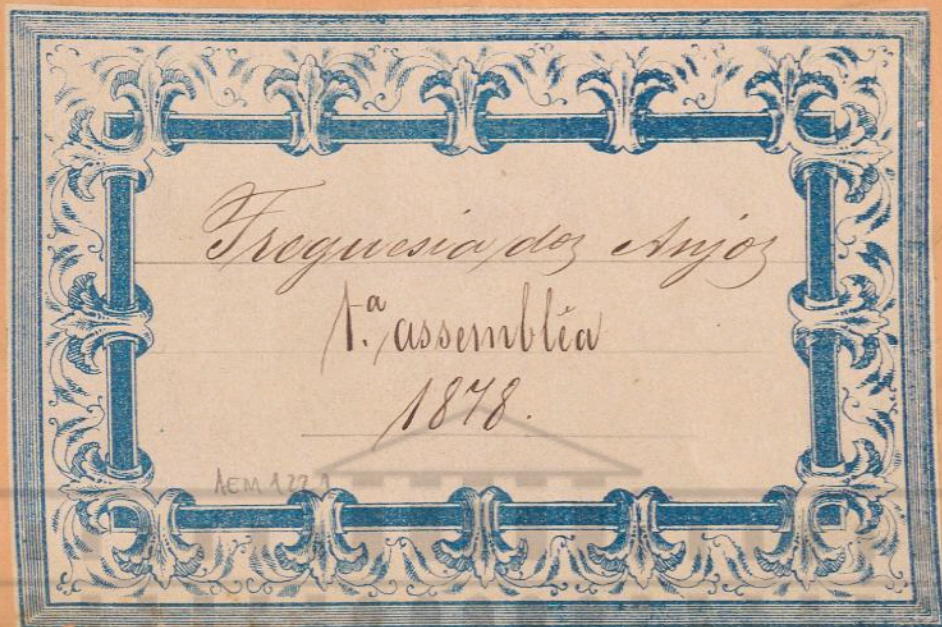 Freguesia dos Anjos
1.ª assembléa
1878.
AEM 122 1